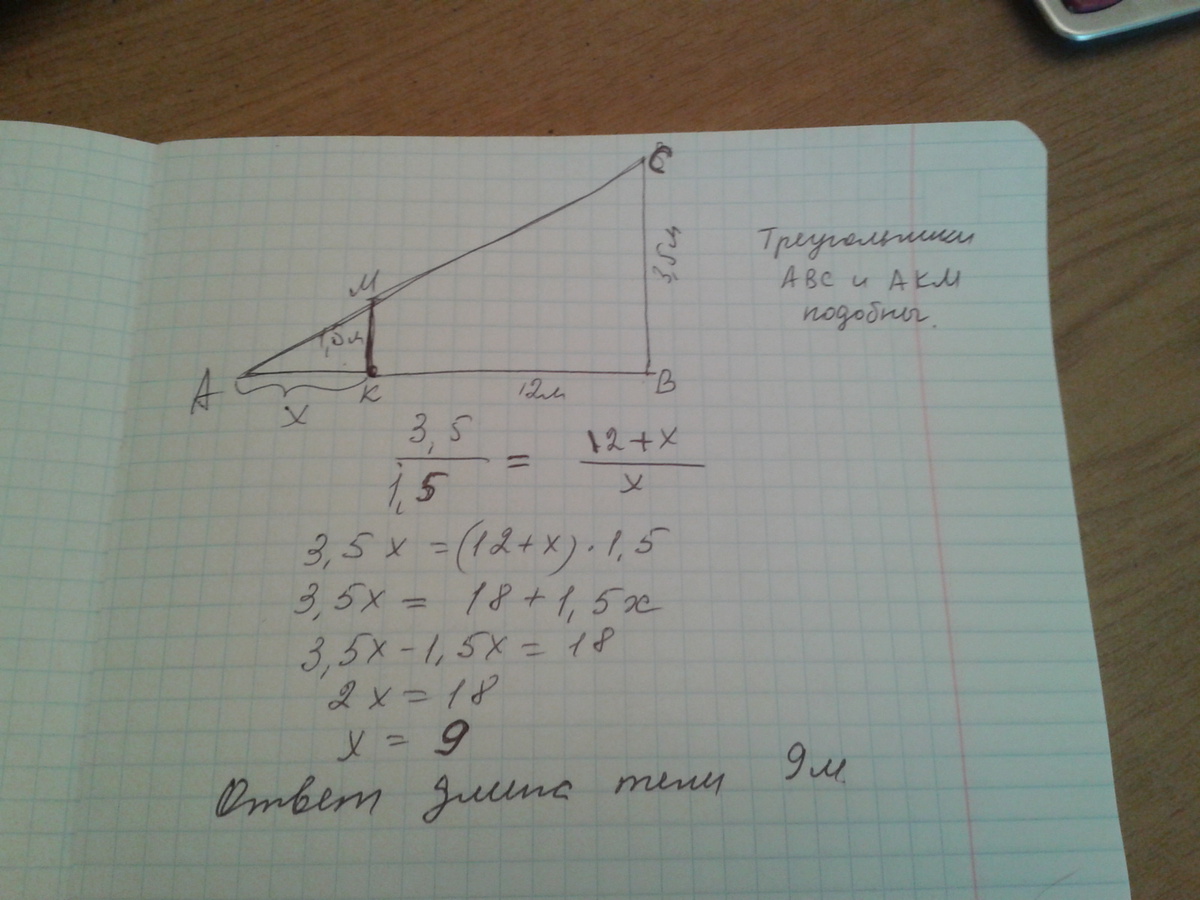 C
M
3,5м
1,5м
A
x
K
12м
B
Треугольники
ABC и AKM
подобны.
3,5 / 1,5 = 12+x / x
3,5x = (12+x)·1,5
3,5x = 18+1,5x
3,5x-1,5x = 18
2x = 18
x = 9
Ответ длина тени 9м